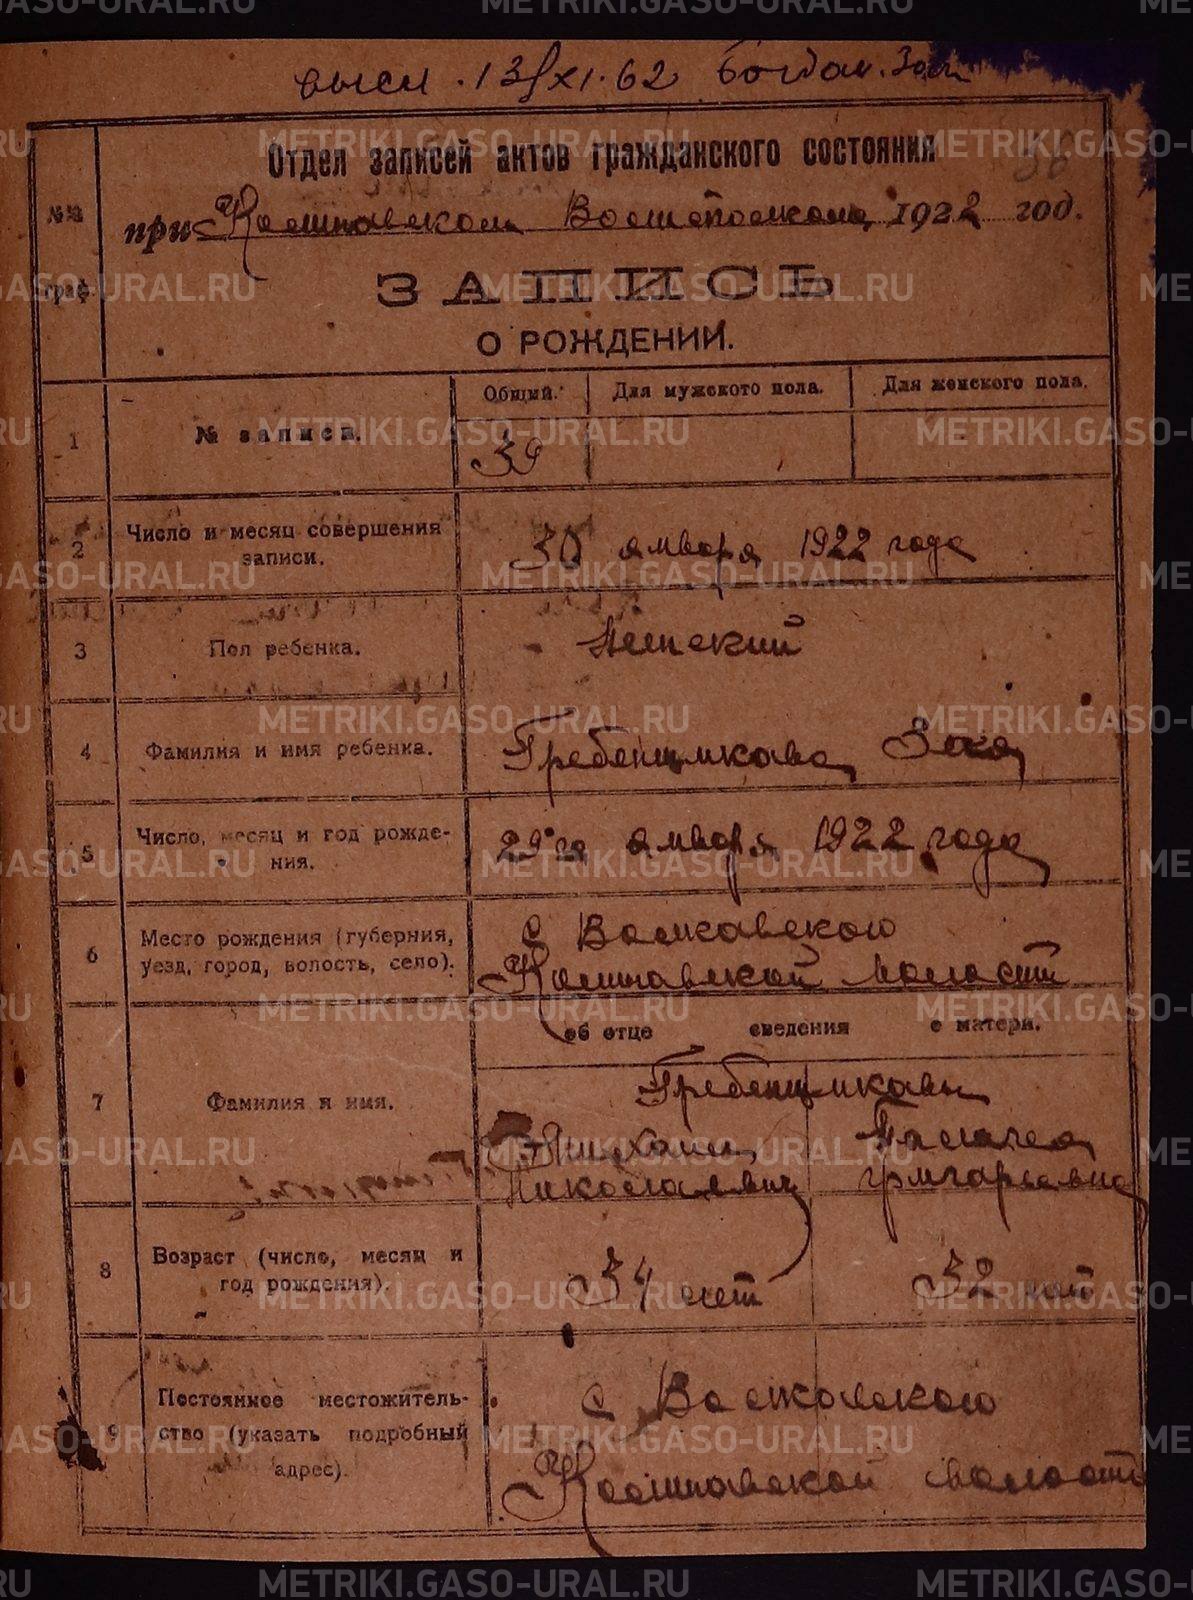 высл. 13/XI.62 Богдан. Загс
36
Отдел записей актов гражданского состояния
№№ граф.
при Волисполкоме, 1922 год.
ЗАПИСЬ
О РОЖДЕНИИ.
Общий. Для мужского пола. Для женского пола.
1 № записи. 39
2 Число и месяц совершения записи. 30 января 1922 года
3 Пол ребенка. Женский
4 Фамилия и имя ребенка. Гребенщикова Зоя
5 Число, месяц и год рождения. 29го января 1922 года
6 Место рождения (губерния, уезд, город, волость, село). с Волковского
волости
об отце сведения о матери.
7 Фамилия и имя. Гребенщиковы
Михаил Пелагея
Николаевич Григорьевна
8 Возраст (число, месяц и год рождения). 34 лет 32 лет
9 Постоянное местожительство (указать подробный адрес). с Волковского
волости
METRIKI.GASO-URAL.RU